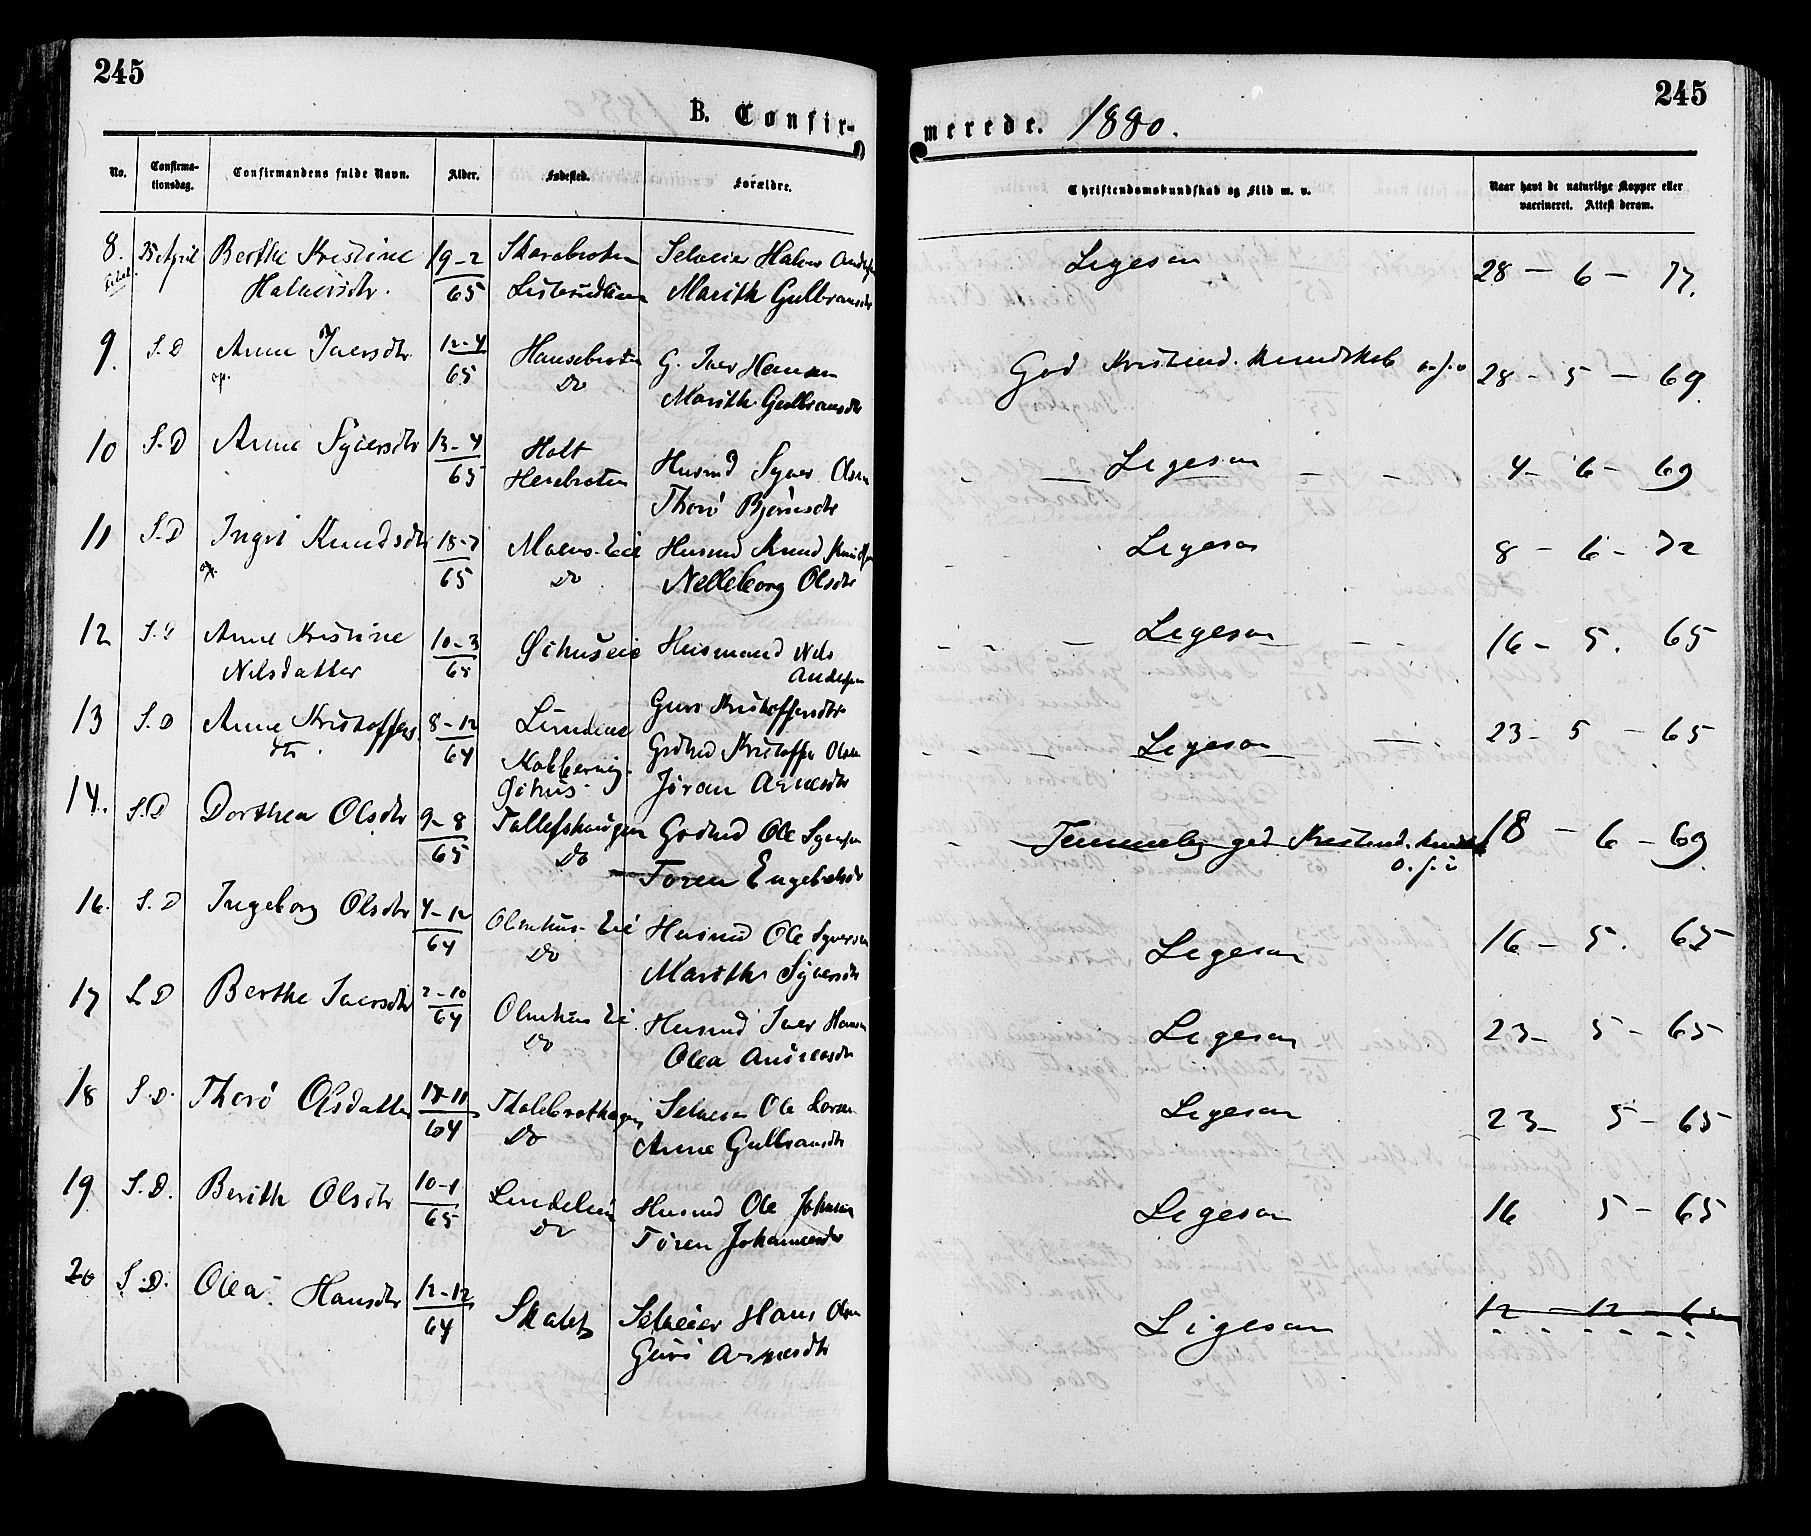 245
245
B. Confir-
merede. 1880.
No.
Confirma-
tionsdag.
Confirmandens fulde Navn.
Alder.
Fødested.
Forældre.
Christendomskundskab og Flid m. v.
Naar havt de naturlige Kopper eller
vaccineret. Attest derom.
8. 25 April Berthe Kristine 19-2 Skarabroten Selveier Halvor
Halvorsdtr. 65 Marith Gulbransdtr
Ligesaa 28 - 6 - 77.
9. S. D Anne Iversdtr 12-4 Hansebroten G. Iver Hansen
op. 65 Do Marith Gulbransdtr
God Kristend. Kundskab o.s.v 28 - 5 - 69.
10 S. D Anne Syversdtr 13-4 Holt Husmd Syver Olsen
65 Thorø Bjørnsdtr
Ligesaa 4 - 6 - 69
11 S. D Ingri Knudsdtr 18-7 Husmd Knud
65 Do Nelleborg Olsdtr
Ligesaa 8 - 6 - 72
12 Anne Kristine 10-3 Husmand Nils
Nilsdatter 65 Andersen
Guri Kristoffersdtr
Ligesaa 16 - 5. 65
13 S. D Anne Kristoffers 8-12 Grdmd Kristoffer Olsen
dtr. 64 Jøran Arnesdtr
Ligesaa 23 - 5 - 65
14. S. D Dorthea Olsdtr 9-8 Tollefshaugen Grdmd Ole Syversen
65 Do Tøren Engebretsdr
Temmelig god Kristend. Kundsk 18 - 6 - 69.
o.s.v
16. S. D Ingeborg Olsdtr 4-12 Olmhus-Eie Husmd Ole Syversen
64 Do Marithe Syversdtr
Ligesaa 16 - 5. 65
17 S. D Berthe Iversdtr 2-10 Olmhus Ei Husmd Iver Hansen
64 Do Olea Andreasdtr
Ligesaa 23 - 5 - 65
18 S. D. Thorø Olsdatter 64 Selveier Ole
Do Anne Gulbransdtr
Ligesaa 23 - 5 - 65
19 S. D. Berith Olsdtr 10-1 Lindelien Husmd Ole Johansen
65 Do Tøren Johannesdtr
Ligesaa 16 5 - 65
20 S. D. Olea Hansdtr 12-12 Selveier Hans Olsen
64 Guri Arnesdtr
Ligesaa 12 - 12 - 6